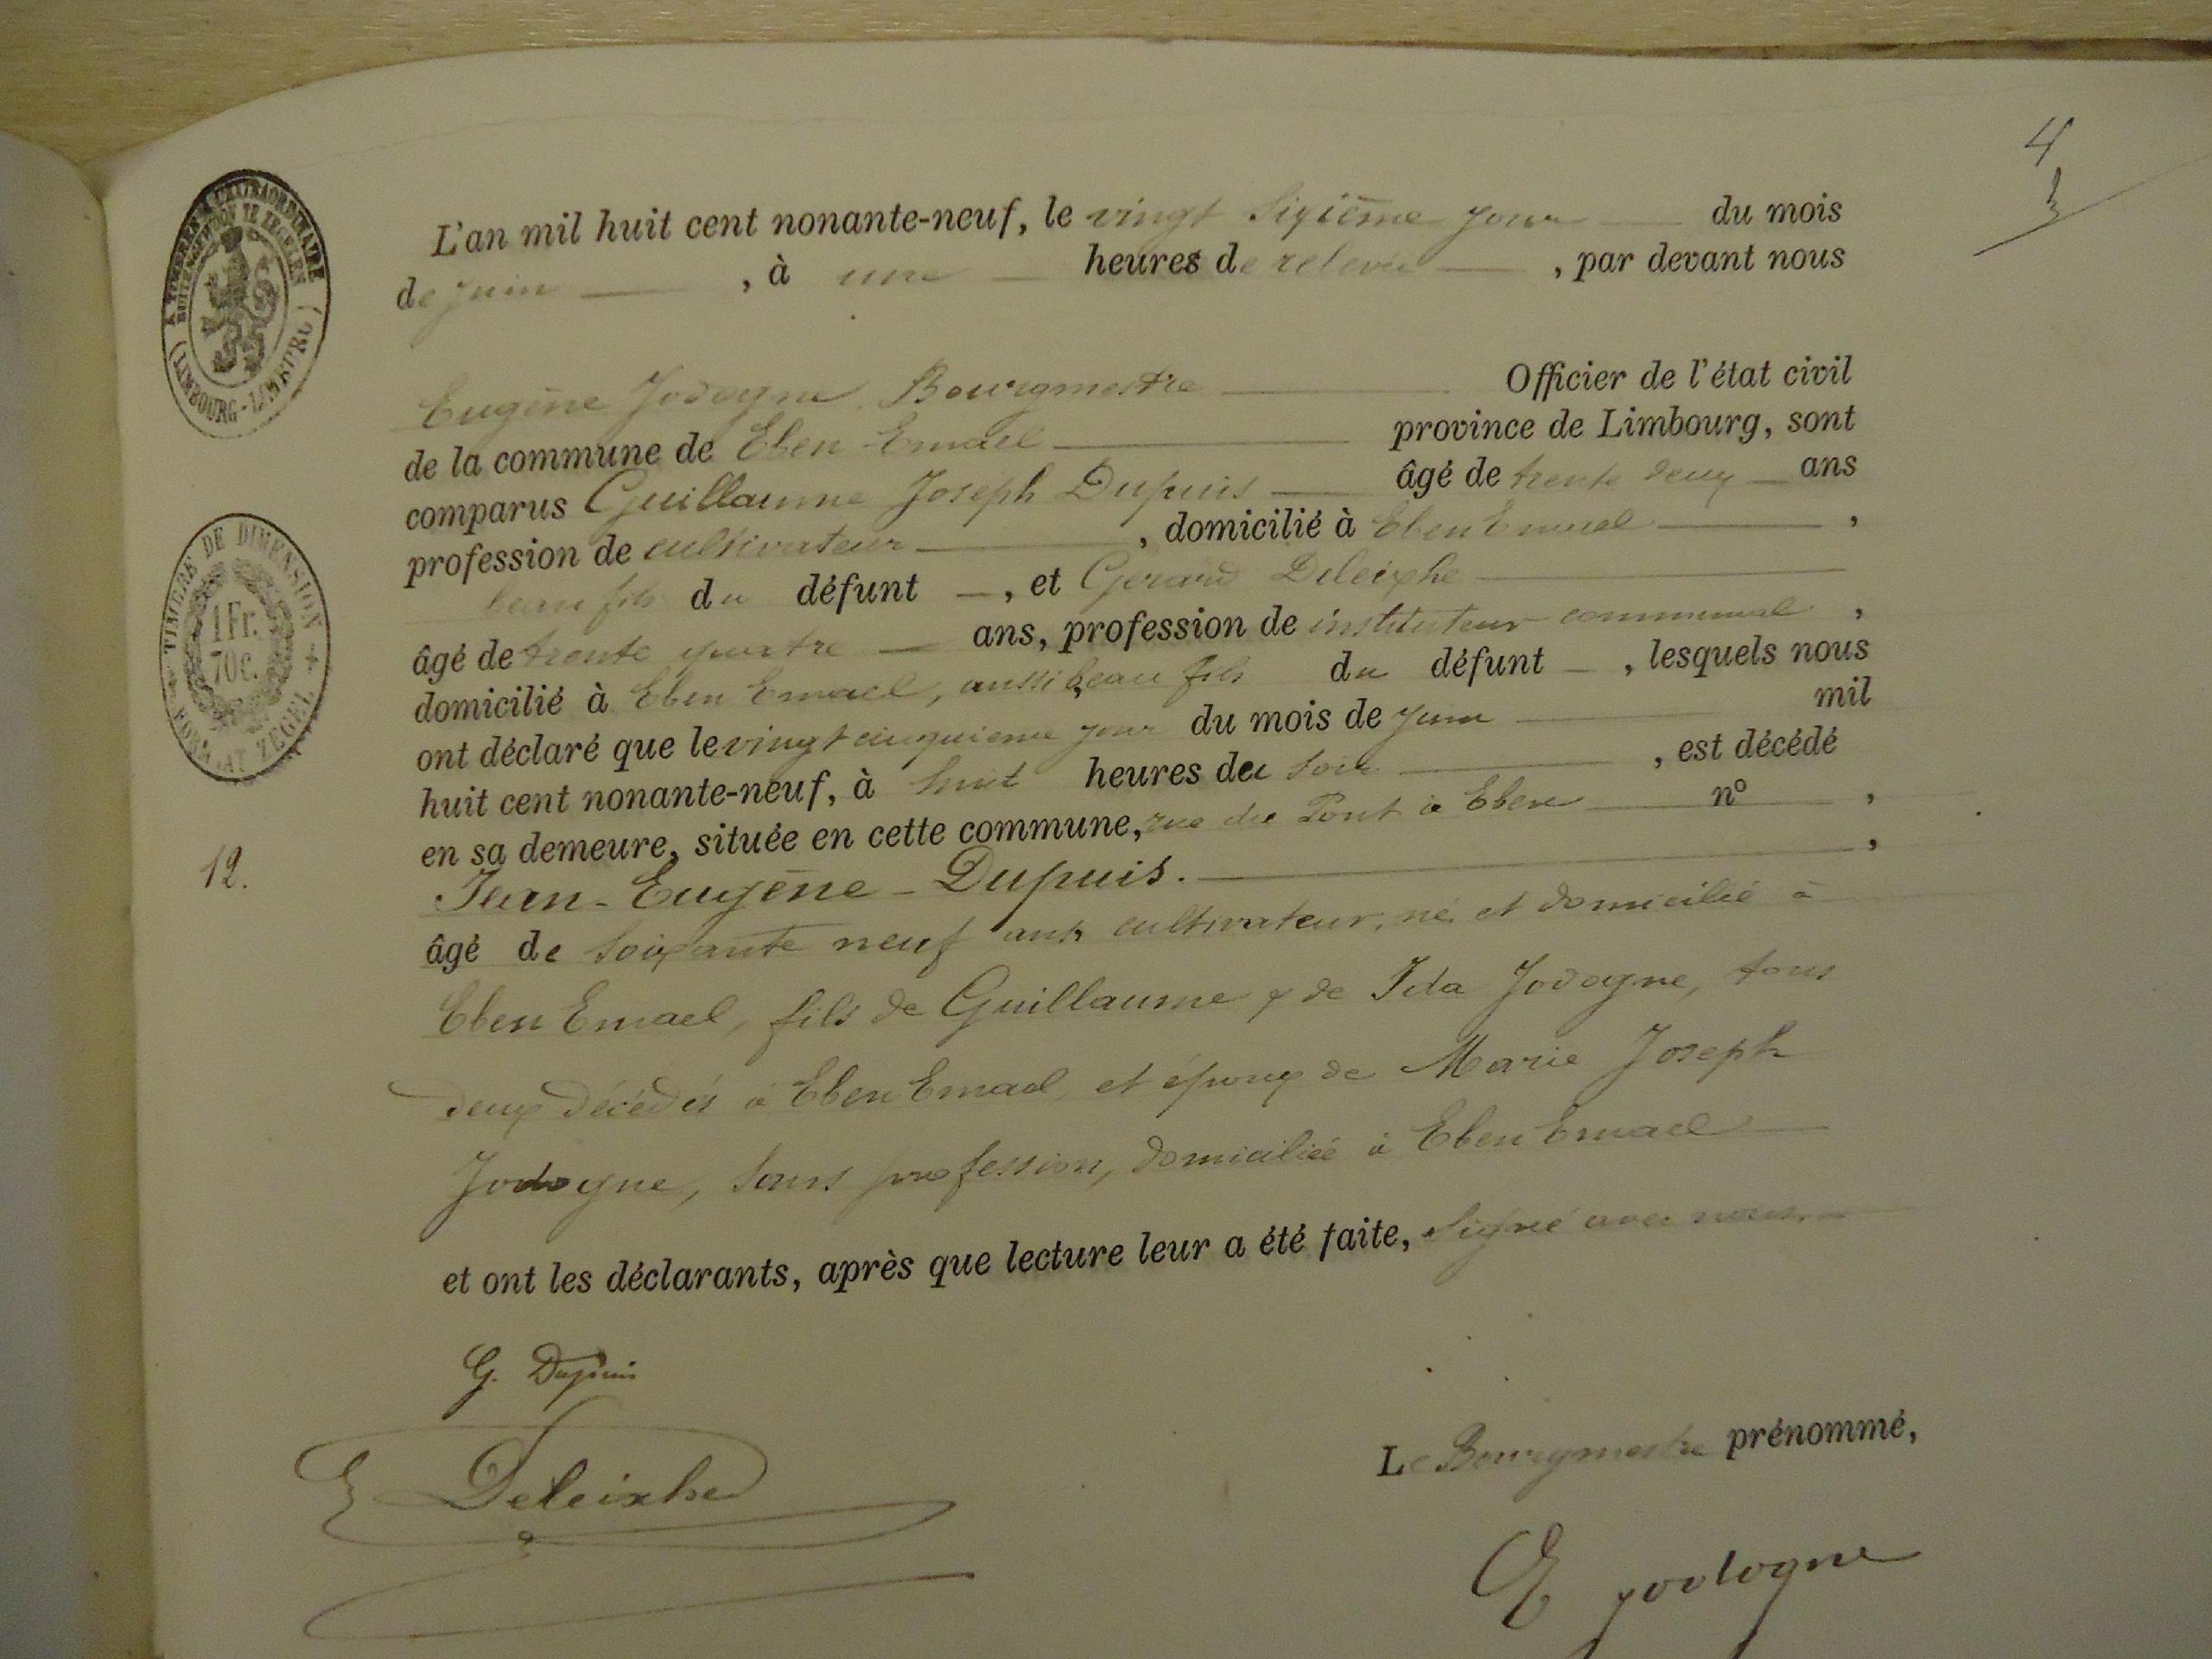 4
3
L'an mil huit cent nonante-neuf, le vingt sixième jour du mois
de juin, à une heures de relevée, par devant nous
Eugène Jodogne Bourgmestre Officier de l'état civil
de la commune de Eben-Emael province de Limbourg, sont
comparus Guillaume Joseph Dupuis âgé de trente deux ans
profession de cultivateur, domicilié à Eben Emael,
beau fils du défunt, et Gerard Deleixhe
âgé de trente quatre ans, profession de instituteur communal,
domicilié à Eben Emael, aussi beau fils du défunt, lesquels nous
ont déclaré que le vingt cinquième jour du mois de juin mil
huit cent nonante-neuf, à huit heures du soir, est décédé
en sa demeure, située en cette commune, rue du Pont à Eben nº,
12.
Jean-Eugène-Dupuis.,
âgé de soixante neuf ans, cultivateur, né et domicilié à
Eben Emael, fils de Guillaume & de Ida Jodogne, tous
deux décédés à Eben Emael, et époux de Marie Joseph
Jodogne, sans profession, domiciliée à Eben Emael
et ont les déclarants, après que lecture leur a été faite, signé avec nous.
G. Dupuis
Deleixhe
Le Bourgmestre prénommé,
E Jodogne
TIMBRE DE DIMENSION
1 Fr.
70c.
FORMAAT ZEGEL
À TIMBRER À L'EXTRAORDINAIRE
BUITENGEWOON TE ZEGELEN
(LIMBOURG-LIMBURG)